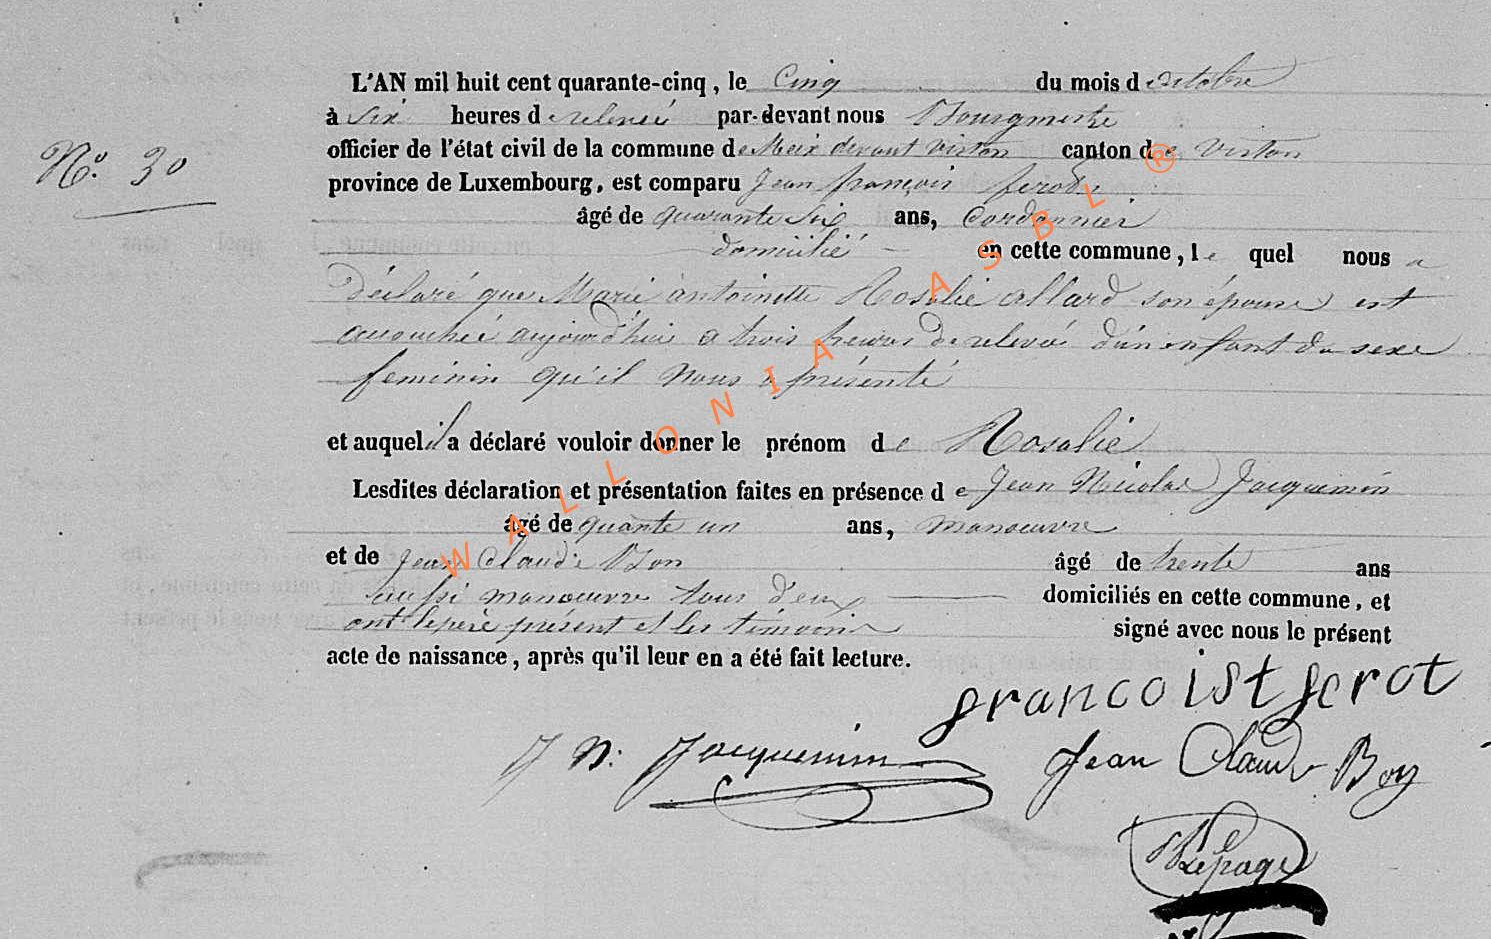 L'AN mil huit cent quarante-cinq, le Cinq du mois d'octobre
à Six heures de relevée par-devant nous Bourgmestre
officier de l'état civil de la commune de Meix devant virton canton de Virton
N.° 30
province de Luxembourg, est comparu Jean françois
âgé de quarante six ans, Cordonnier
domicilié en cette commune, le quel nous a
déclaré que Marie antoinette Rosalie allard son épouse est
accouchée aujourd'hui a trois heures de relevée d'un enfant du sexe
feminin qu'il nous a présenté
et auquel il a déclaré vouloir donner le prénom de Rosalie
Lesdites déclaration et présentation faites en présence de Jean Nicolas Jacquemin
âgé de quante un ans, manoeuvre
et de Jean Claude âgé de trente ans
aussi manoeuvre tous d'eux domiciliés en cette commune, et
ont le père présent et les témoins signé avec nous le présent
acte de naissance, après qu'il leur en a été fait lecture.
francoist gerot
J N: Jacquemin Jean Claude
Lepage
WALLONIA ASBL ®